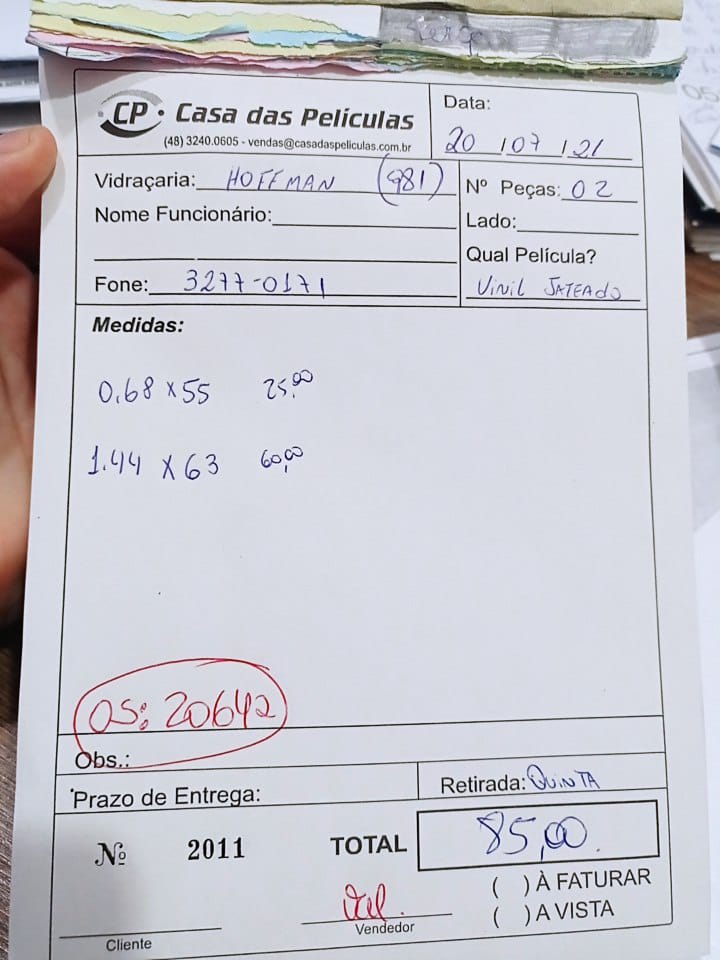 CP Casa das Películas
(48) 3240.0605 - vendas@casadaspeliculas.com.br
Data:
20 / 07 / 21
Vidraçaria: HOFFMAN (981)
Nº Peças: 02
Nome Funcionário:
Lado:
Qual Película?
Fone: 3277-0171
Vinil Jateado
Medidas:
0.68 x 55 25,00
1.44 x 63 60,00
OS: 20642
Obs.:
Prazo de Entrega:
Retirada: QUINTA
Nº 2011
TOTAL 85,00
( ) À FATURAR
( ) A VISTA
Cliente
Vendedor